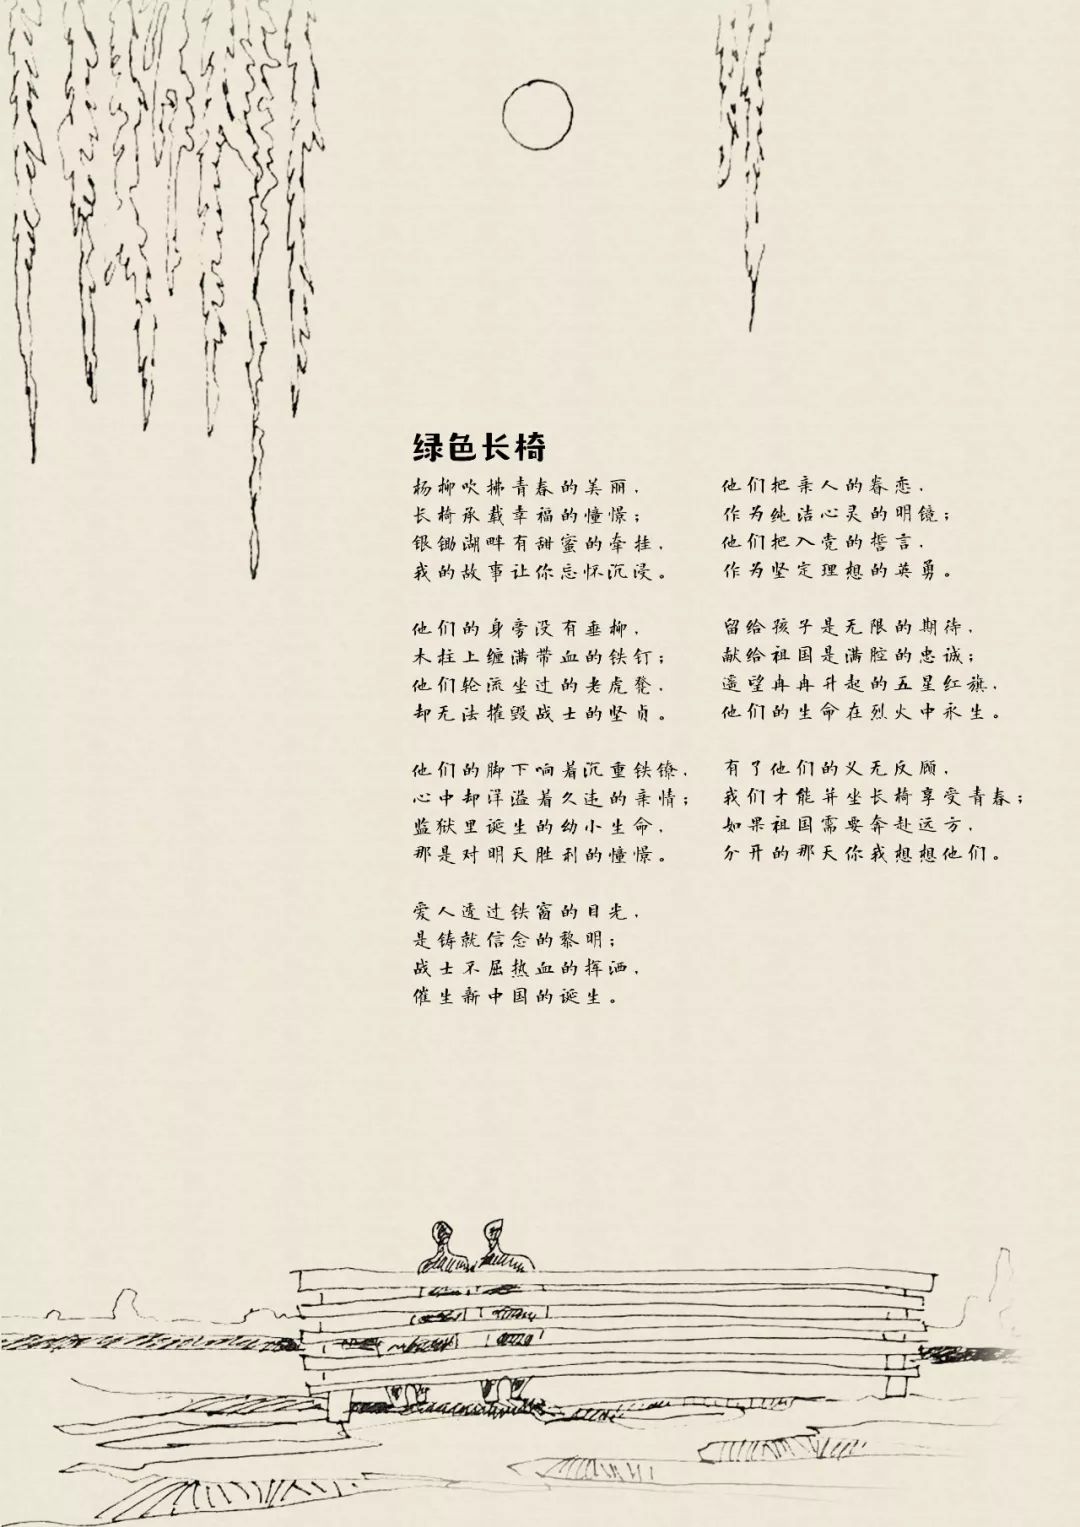 绿色长椅
杨柳吹拂青春的美丽，
长椅承载幸福的憧憬；
银锄湖畔有甜蜜的牵挂，
我的故事让你忘怀沉浸。
他们的身旁没有垂柳，
木柱上缠满带血的铁钉；
他们轮流坐过的老虎凳，
却无法摧毁战士的坚贞。
他们的脚下响着沉重铁镣，
心中却洋溢着久违的亲情；
监狱里诞生的幼小生命，
那是对明天胜利的憧憬。
爱人透过铁窗的目光，
是铸就信念的黎明；
战士不屈热血的挥洒，
催生新中国的诞生。
他们把亲人的眷恋，
作为纯洁心灵的明镜；
他们把入党的誓言，
作为坚定理想的英勇。
留给孩子是无限的期待，
献给祖国是满腔的忠诚；
遥望冉冉升起的五星红旗，
他们的生命在烈火中永生。
有了他们的义无反顾，
我们才能并坐长椅享受青春；
如果祖国需要奔赴远方，
分开的那天你我想想他们。